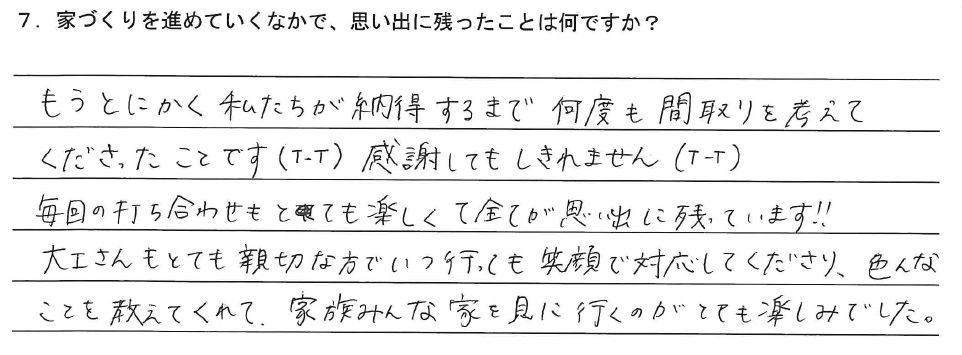 ７．家づくりを進めていくなかで、思い出に残ったことは何ですか？
もうとにかく私たちが納得するまで何度も間取りを考えて
くださったことです(T-T) 感謝してもしきれません(T-T)
毎回の打ち合わせもとても楽しくて全てが思い出に残っています!!
大工さんもとても親切な方でいつ行っても笑顔で対応してくださり、色んな
ことを教えてくれて、家族みんな家を見に行くのがとても楽しみでした。